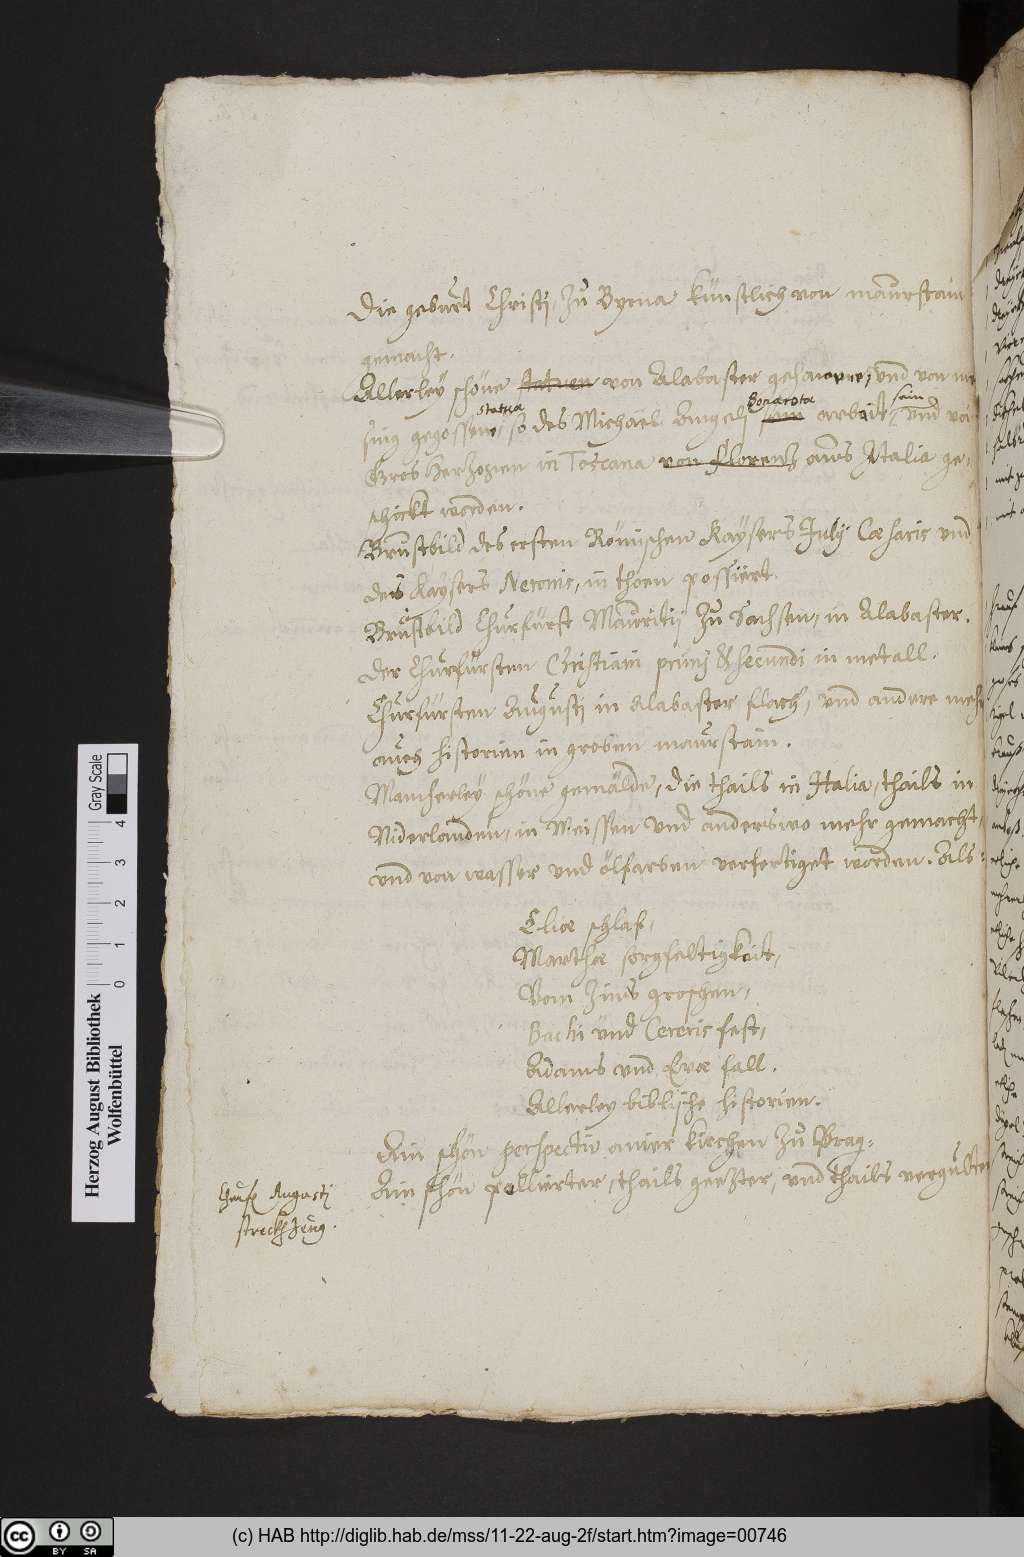 Die geburt Christj, Zu Byrna künstlich von maurstain
gemacht.
Allerley schöne statuen von Alabaster gehawene, vnd von me
statua Bonarota sein
sing gegossene, so des Michaël Angelj sein arbeit, vnd vo
Gros Herzogen in Toscana von Florentz aus Italia ge-
schickt worden.
Brustbild des ersten Römischen Kaysers Julij Cæsaris vnd
des Kaysers Neronis, in thoen possiert.
Brustbild Churfürst Mauritij Zu Sachsen, in Alabaster.
der Churfürsten Christiani primj & secundi in metall.
Churfürsten Augustj in Alabaster flach, vnd andere mehr
auch historien in groben maurstain.
Mancherley schöne gemälde, die thails in Italia, thails in
Niderlanden, in Meissen vnd anderswo mehr gemacht,
vnd von wasser vnd ölfarben verfertiget worden. Als:
Eliæ schlaf,
Marthæ sorgfeltigkeit,
Vom Zinsgroschen,
Bachi vnd Cereris fest,
Adams vnd Evæ fall.
Allerley biblische historien.
Ain schön perspectiv ainer kirchen Zu Prag.
Ain schön pollierter, thails geezter, vnd thails vergulter
Churf. Augustj
streckZeug.
Herzog August Bibliothek
Wolfenbüttel
0 1 2 3 4
Gray Scale
cc BY SA
(c) HAB http://diglib.hab.de/mss/11-22-aug-2f/start.htm?image=00746